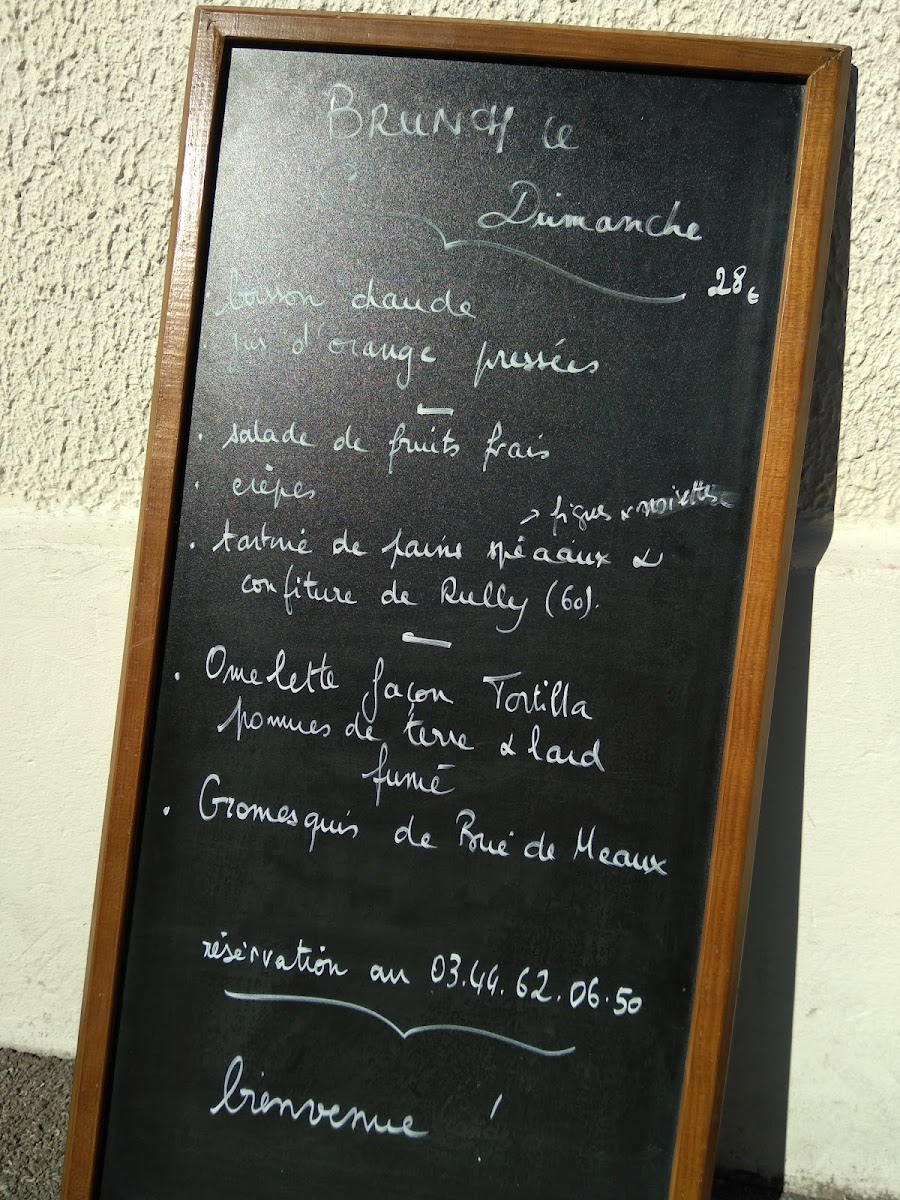 BRUNCH le
Dimanche
28€
boisson chaude
jus d'orange pressées
• salade de fruits frais
• crêpes
→ figues & noisettes
• tartine de pains spéciaux &
confiture de Rully (60).
• Omelette façon Tortilla
pommes de terre & lard
fumé
• Cromesquis de Brie de Meaux
réservation au 03.44.62.06.50
bienvenue !